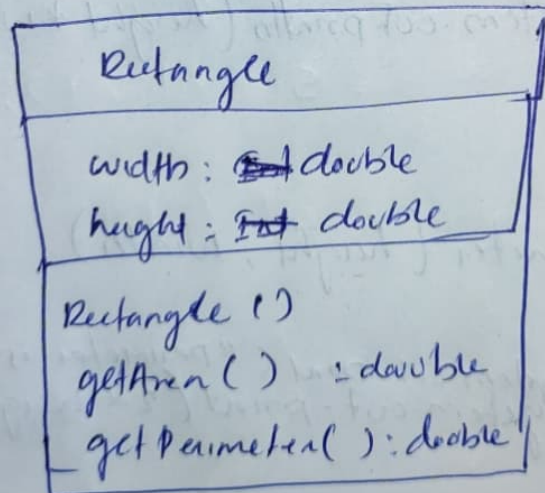 Rectangle
width : double
height : Int double
Rectangle ()
getArea ( ) : double
getPerimeter( ) : double